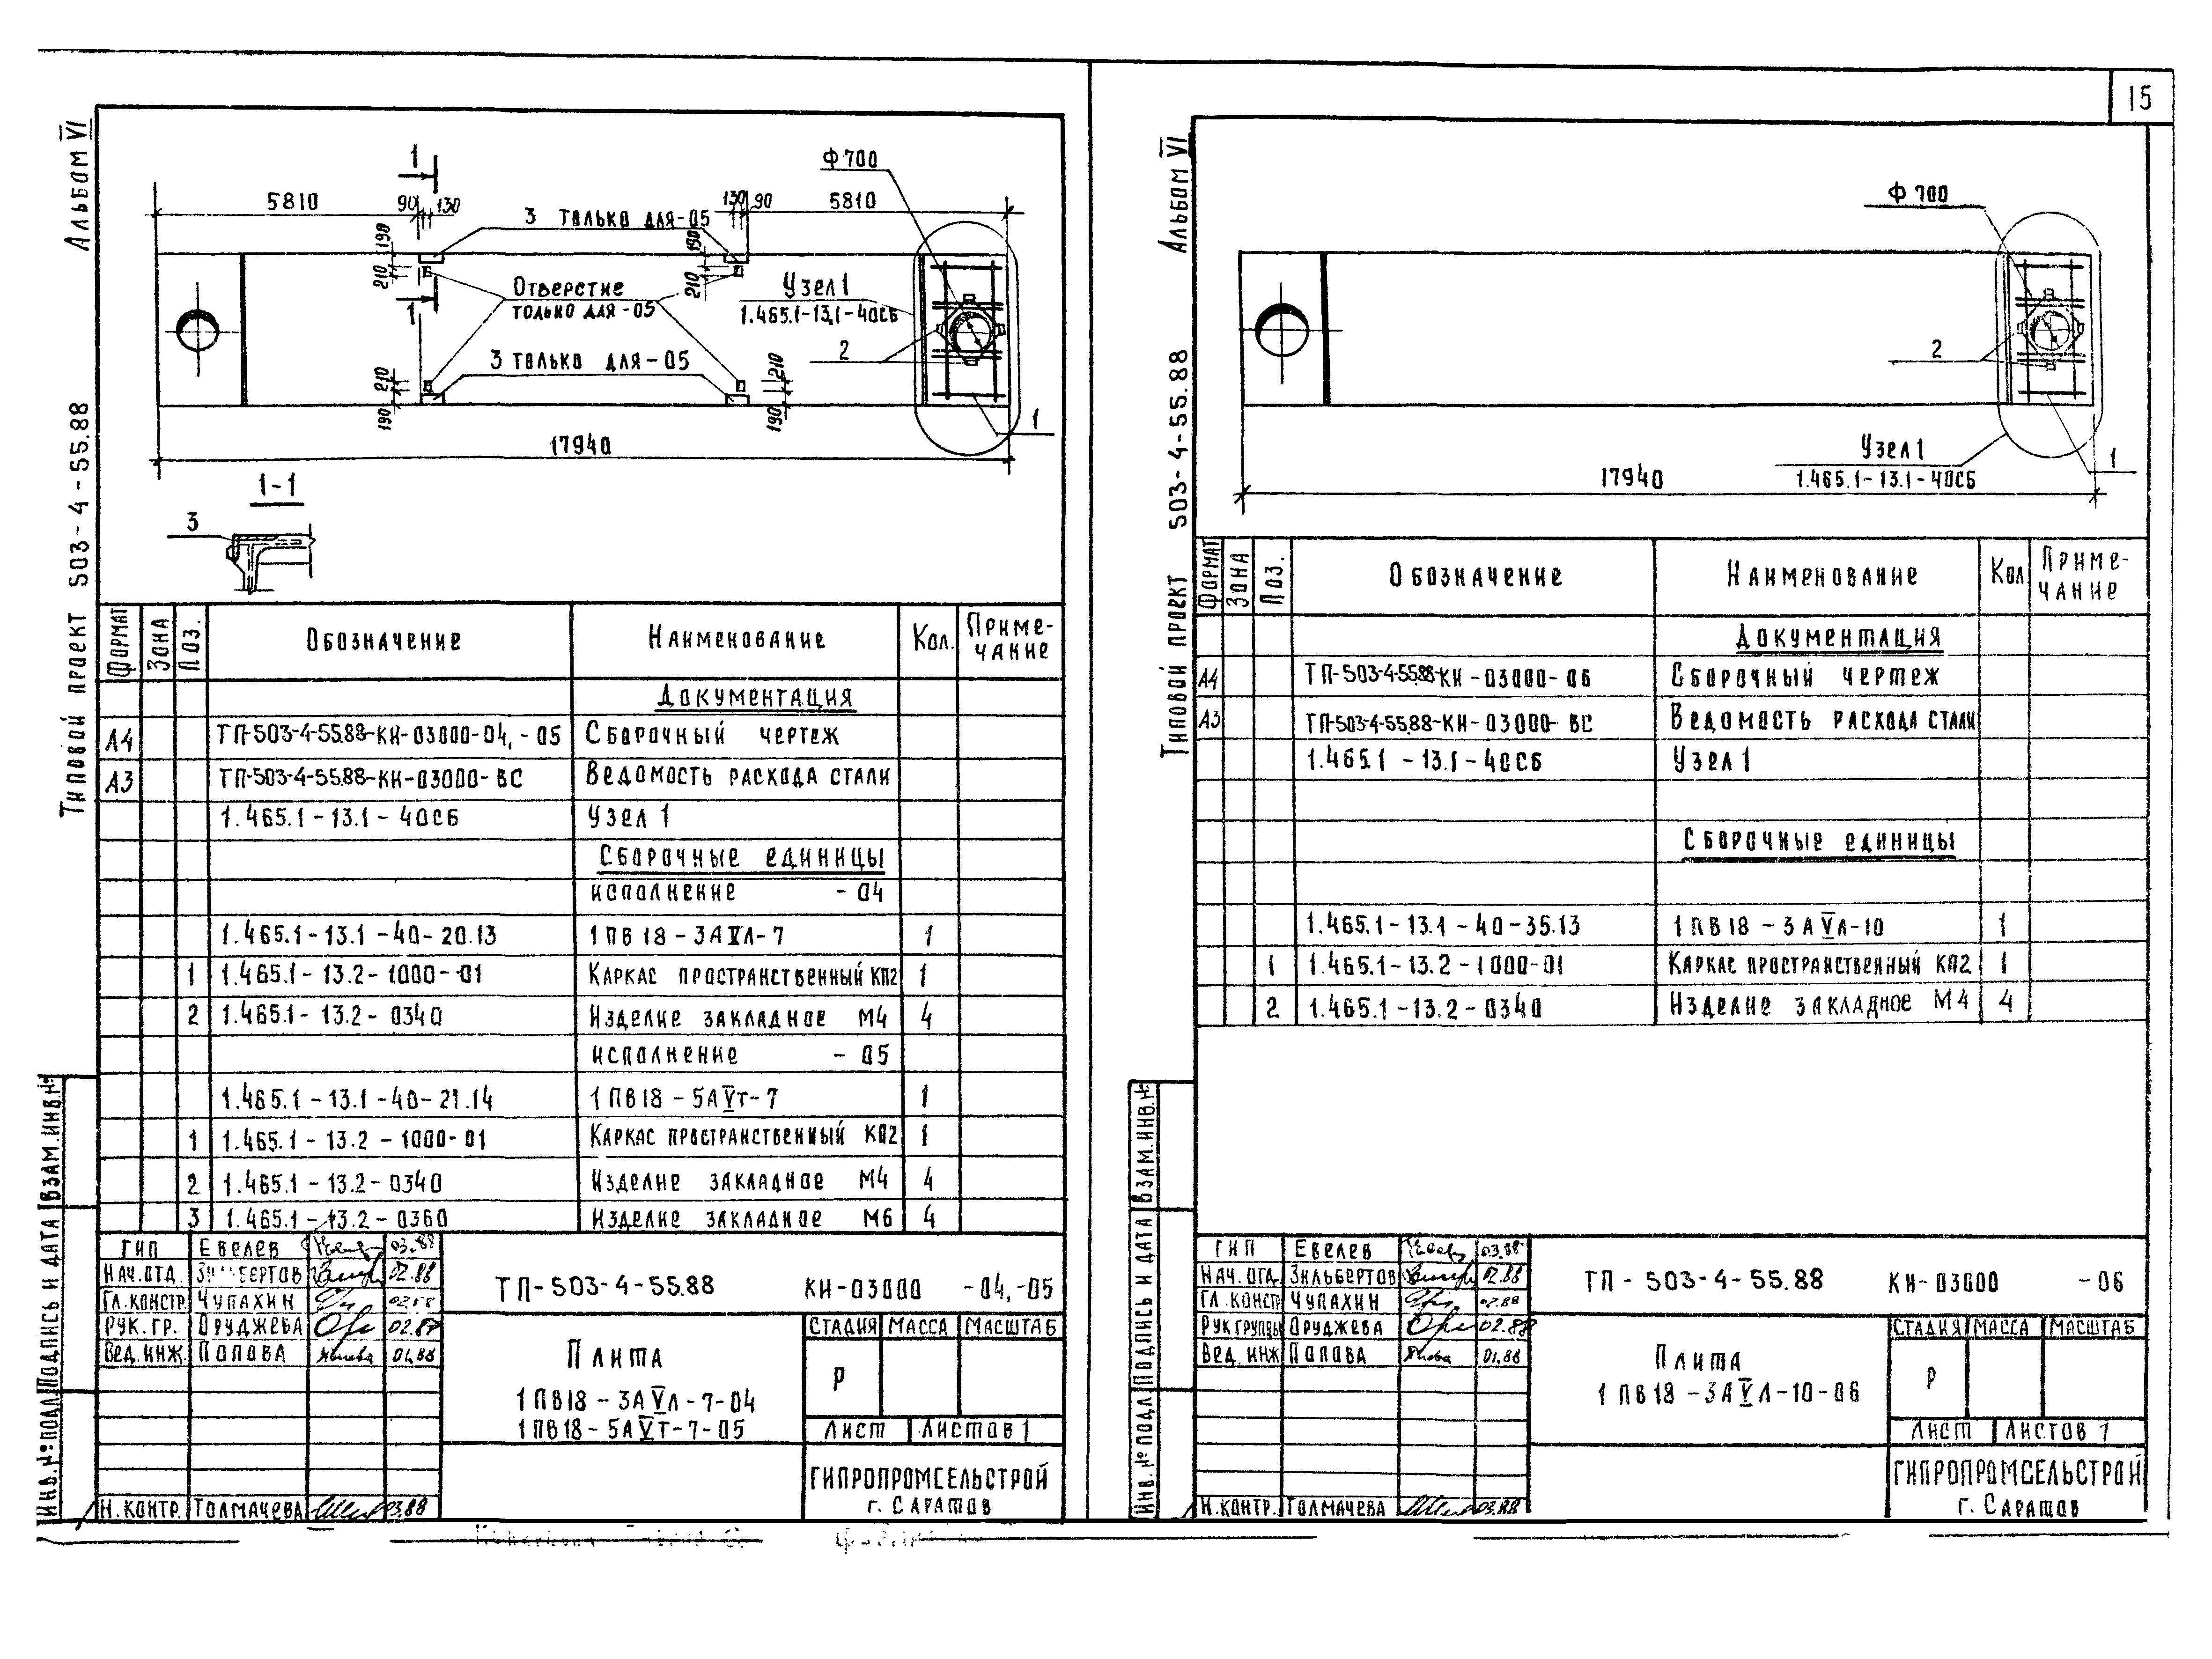 15
Альбом VI
Типовой проект 503-4-55.88
1
Ф 700
5810
90
130
130
90
5810
3 только для-05
190
210
190
210
Отверстие
только для-05
Узел 1
1.465.1-13.1-40СБ
1
2
3 только для-05
210
190
210
190
1
17940
1-1
3
Формат
Зона
Поз.
Обозначение
Наименование
Кол.
Приме-
чание
Документация
А4 ТП-503-4-55.88-КИ-03000-04,-05 Сборочный чертеж
А3 ТП-503-4-55.88-КИ-03000-ВС Ведомость расхода стали
1.465.1-13.1-40СБ Узел 1
Сборочные единицы
исполнение -04
1.465.1-13.1-40-20.13 1ПВ18-3АVл-7 1
1 1.465.1-13.2-1000-01 Каркас пространственный КП2 1
2 1.465.1-13.2-0340 Изделие закладное М4 4
исполнение -05
1.465.1-13.1-40-21.14 1ПВ18-5АVт-7 1
1 1.465.1-13.2-1000-01 Каркас пространственный КП2 1
2 1.465.1-13.2-0340 Изделие закладное М4 4
3 1.465.1-13.2-0360 Изделие закладное М6 4
ГИП Евелев 03.88
Нач.отд. Зильбертов 02.88
Гл.констр. Чупахин 02.88
Рук.гр. Оруджева 02.87
Вед.инж. Попова 01.88
Н.контр. Толмачева 03.88
ТП-503-4-55.88 КИ-03000 -04,-05
Плита
1ПВ18-3АVл-7-04
1ПВ18-5АVт-7-05
Стадия Масса Масштаб
Р
Лист Листов 1
ГИПРОПРОМСЕЛЬСТРОЙ
г. Саратов
Инв.№ подл. Подпись и дата Взам.инв.№
Альбом VI
Типовой проект 503-4-55.88
Ф 700
2
1
Узел 1
1.465.1-13.1-40СБ
17940
Формат
Зона
Поз.
Обозначение
Наименование
Кол
Приме-
чание
Документация
А4 ТП-503-4-55.88-КИ-03000-06 Сборочный чертеж
А3 ТП-503-4-55.88-КИ-03000-ВС Ведомость расхода стали
1.465.1-13.1-40СБ Узел 1
Сборочные единицы
1.465.1-13.1-40-35.13 1ПВ18-3АVл-10 1
1 1.465.1-13.2-1000-01 Каркас пространственный КП2 1
2 1.465.1-13.2-0340 Изделие закладное М4 4
ГИП Евелев 03.88
Нач.отд. Зильбертов 02.88
Гл.констр Чупахин 02.88
Рук.группы Оруджева 02.88
Вед.инж Попова 01.88
Н.контр. Толмачева 03.88
ТП-503-4-55.88 КИ-03000 -06
Плита
1ПВ18-3АVл-10-06
Стадия Масса Масштаб
Р
Лист Листов 1
ГИПРОПРОМСЕЛЬСТРОЙ
г. Саратов
Инв.№ подл Подпись и дата Взам.инв.№